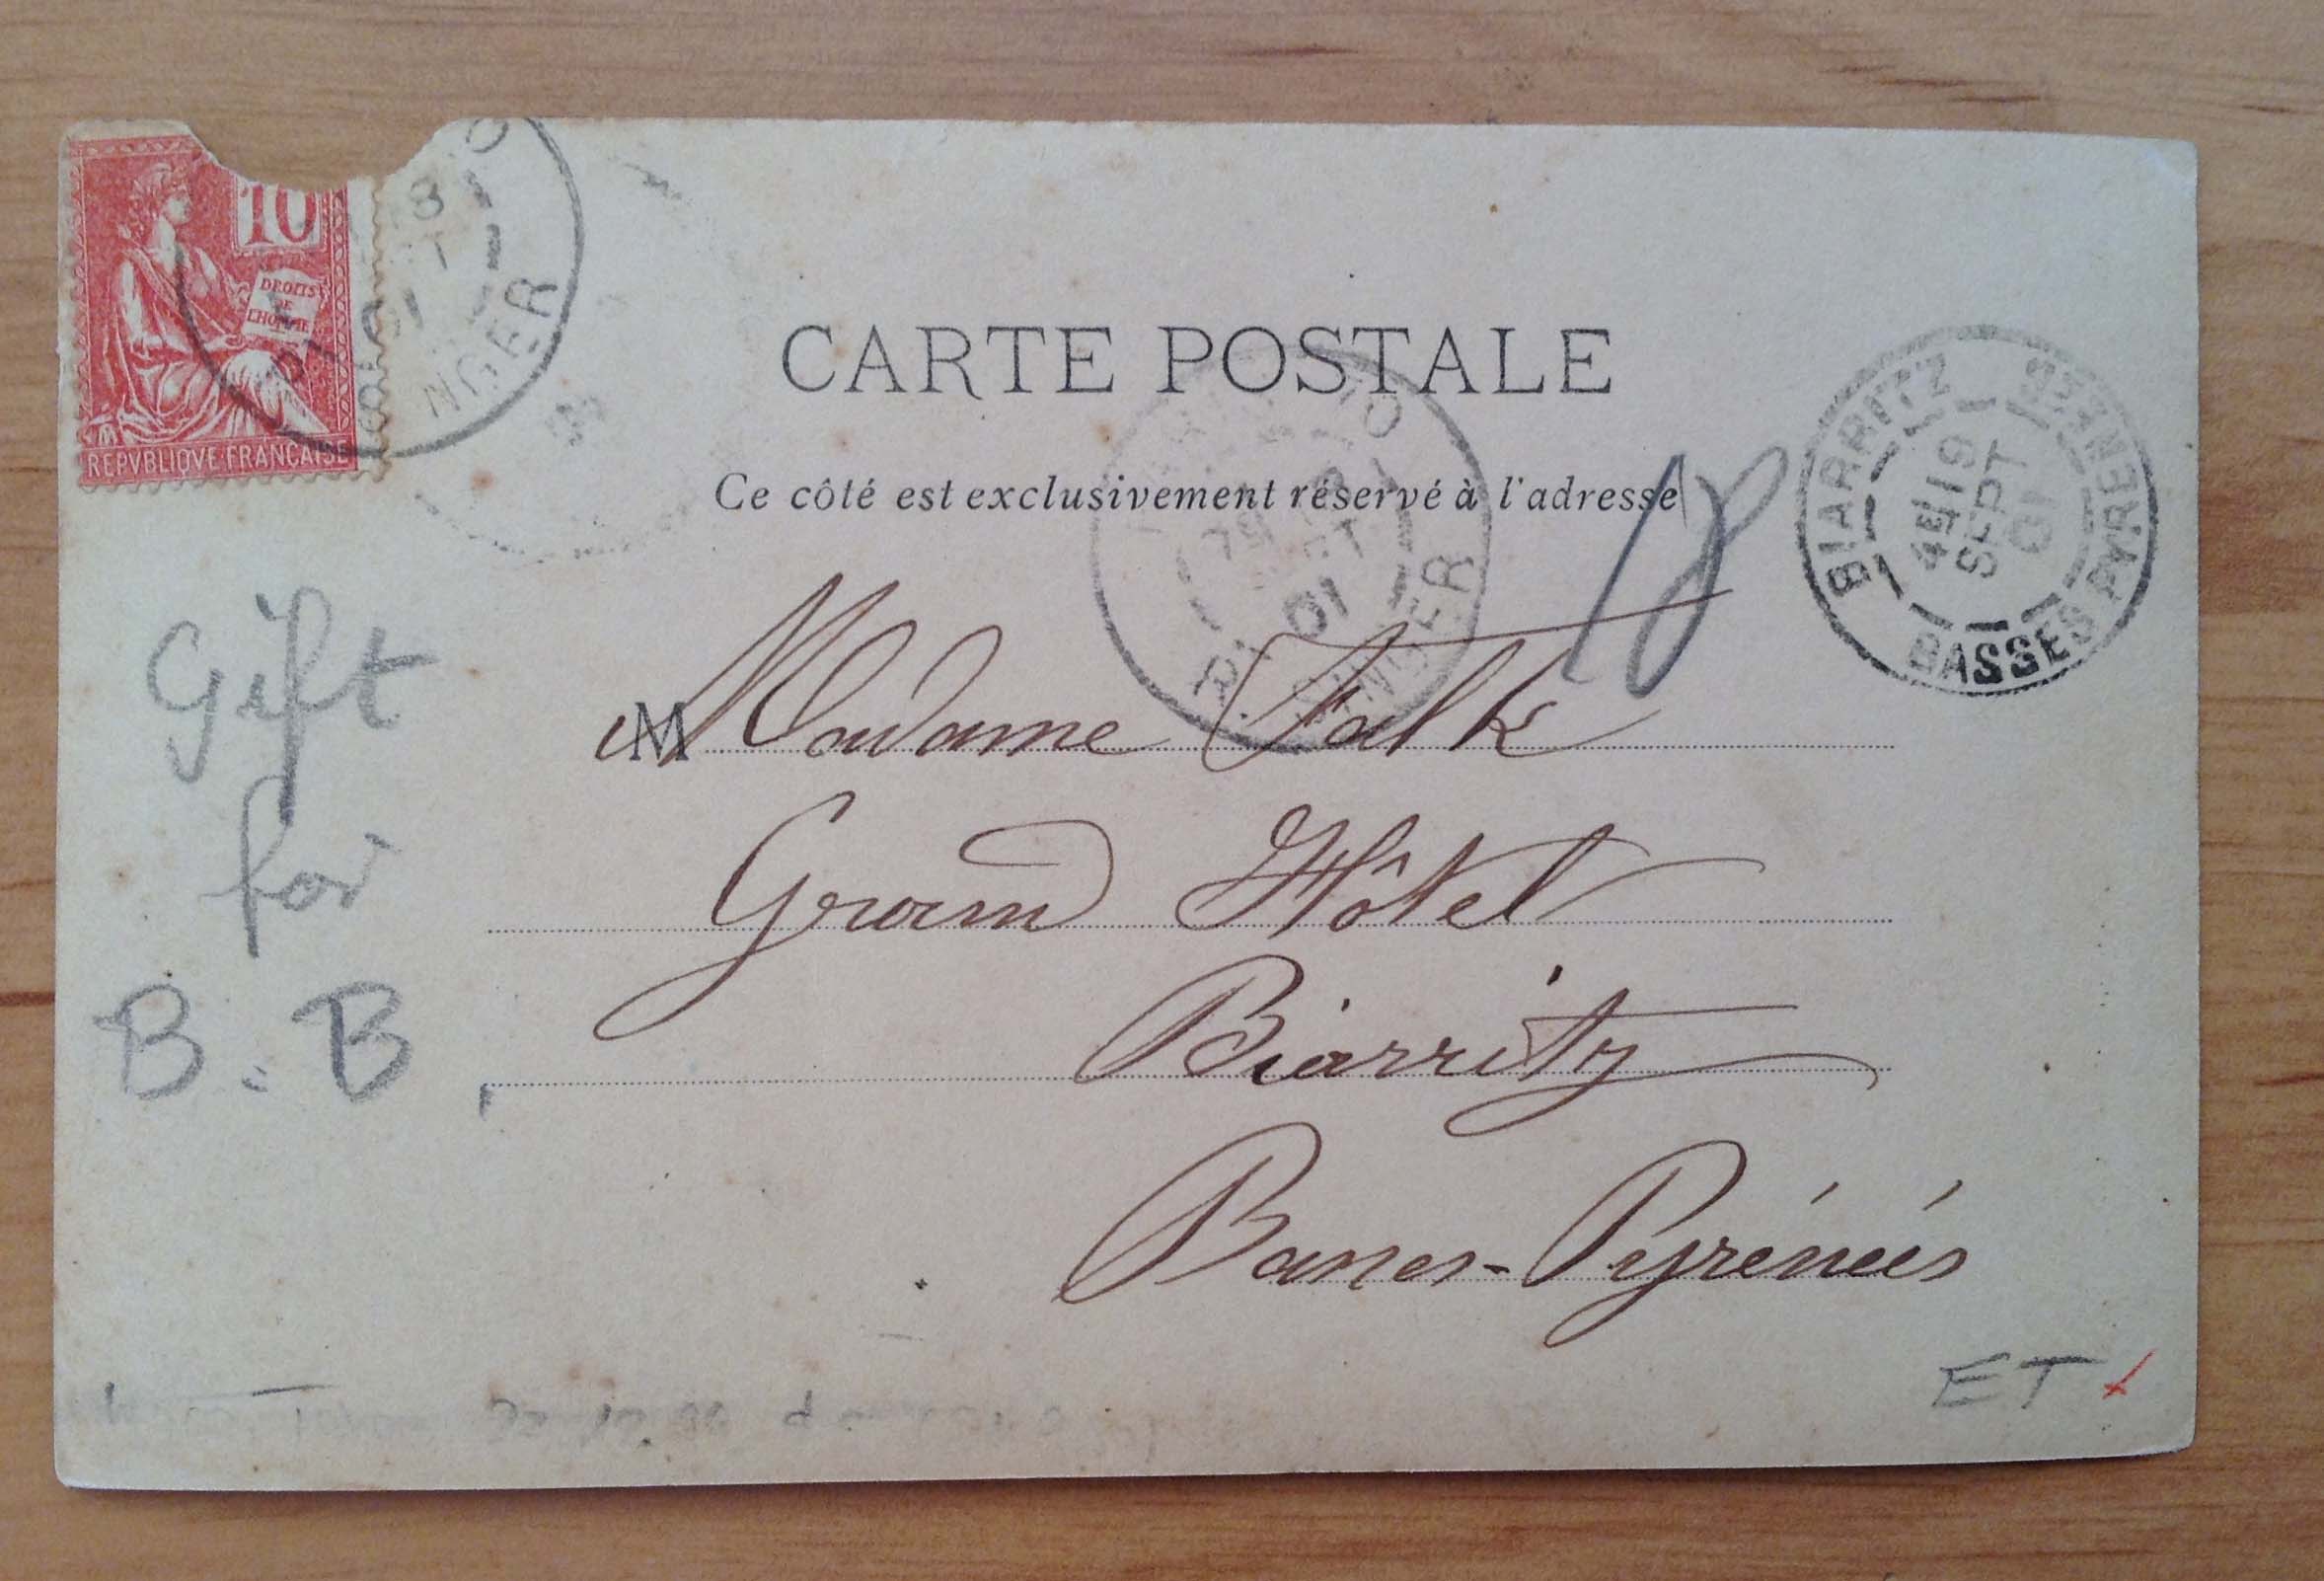 10
DROITS
DE
L'HOMME
REPVBLIQVE FRANÇAISE
01
NGER
CARTE POSTALE
Ce côté est exclusivement réservé à l'adresse
01
18
BIARRITZ
4E 19
SEPT
01
BASSES PYRENEES
Madame Falk
Grand Hôtel
Biarritz
Basses-Pyrénées
Gift
for
B.B
ET